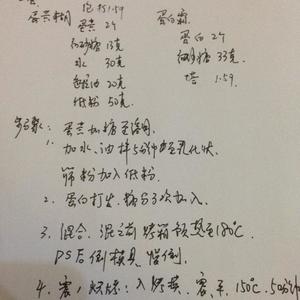 泡打1.5g
蛋黄糊 蛋白霜
蛋黄 2个 蛋白 2个
细砂糖 13克 细砂糖 33克
水 30克 塔 1.5g
色拉油 20克
低粉 50克
步骤:
1. 蛋黄加糖至溶用
加水、油拌5分钟至乳化状
筛粉加入低粉
2. 蛋白打发，糖分3次加入
3. 混合，混之前烤箱预热至180℃
PS后倒模具
4. 震，烤，入烤 150℃, 50分钟